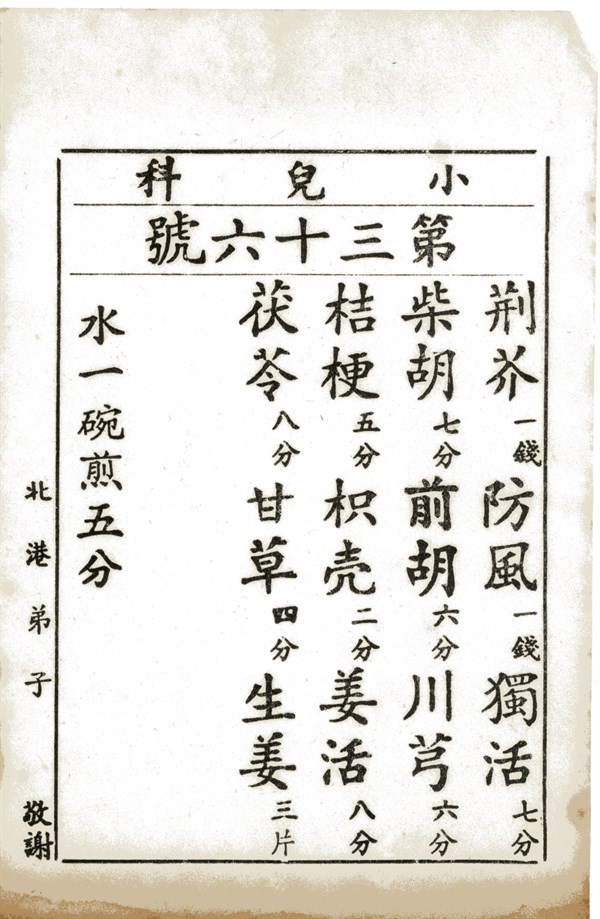 小兒科
第三十六號
荆芥一錢防風一錢獨活七分
柴胡七分前胡六分川芎六分
桔梗五分枳壳二分姜活八分
茯苓八分甘草四分生姜三片
水一碗煎五分
北港弟子敬謝